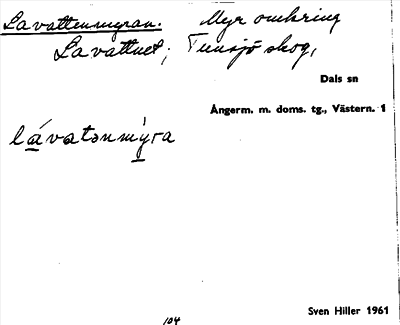 Lavattenmyran. Myr omkring
Lavattnet; Tunsjö skog,
Dals sn
Ångerm. m. doms. tg., Västern. 1
lávatənmỳra
Sven Hiller 1961
104